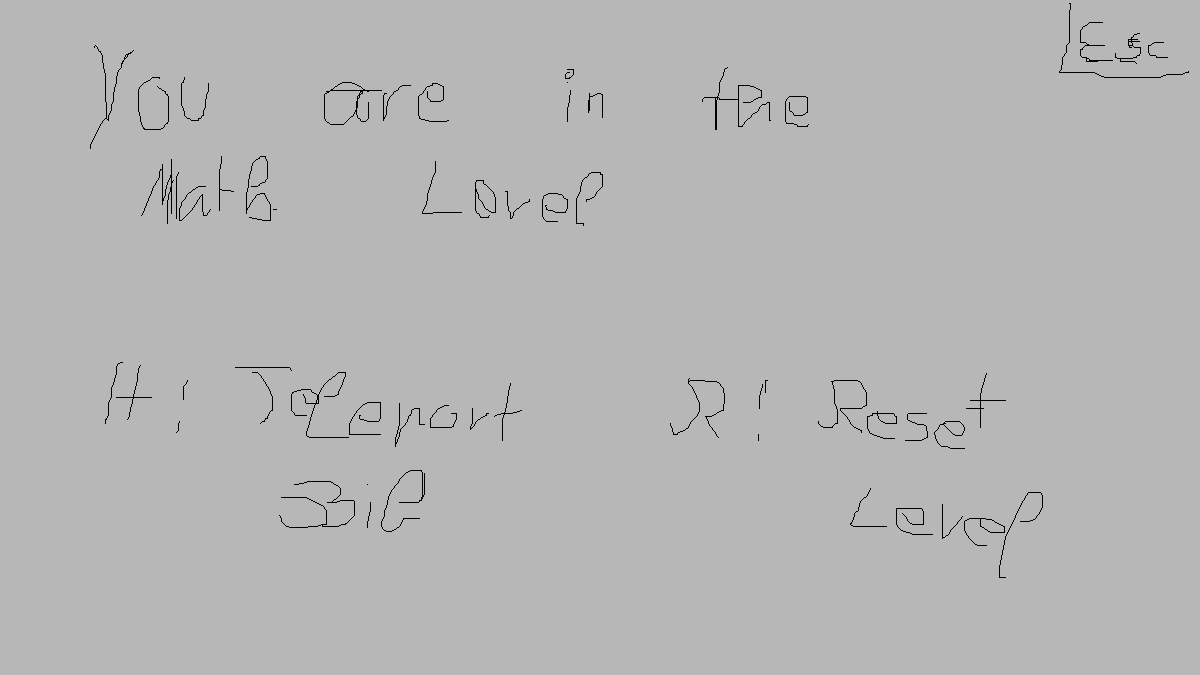 Esc
You are in the
Math Level
H: Teleport
R: Reset
Level